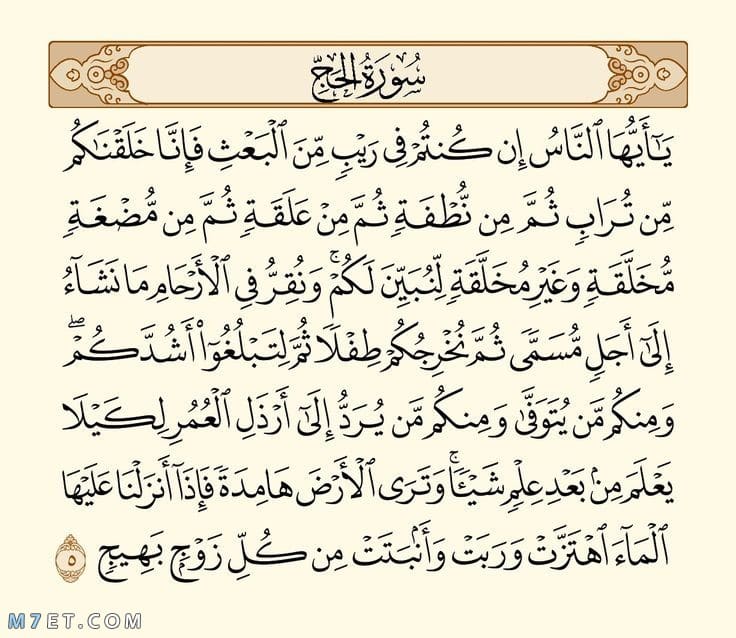 سُورَةُ الحَجِّ
يَـٰٓأَيُّهَا ٱلنَّاسُ إِن كُنتُمْ فِى رَيْبٍ مِّنَ ٱلْبَعْثِ فَإِنَّا خَلَقْنَـٰكُم
مِّن تُرَابٍ ثُمَّ مِن نُّطْفَةٍ ثُمَّ مِنْ عَلَقَةٍ ثُمَّ مِن مُّضْغَةٍ
مُّخَلَّقَةٍ وَغَيْرِ مُخَلَّقَةٍ لِّنُبَيِّنَ لَكُمْ ۚ وَنُقِرُّ فِى ٱلْأَرْحَامِ مَا نَشَآءُ
إِلَىٰٓ أَجَلٍ مُّسَمًّى ثُمَّ نُخْرِجُكُمْ طِفْلًا ثُمَّ لِتَبْلُغُوٓا۟ أَشُدَّكُمْ ۖ
وَمِنكُم مَّن يُتَوَفَّىٰ وَمِنكُم مَّن يُرَدُّ إِلَىٰٓ أَرْذَلِ ٱلْعُمُرِ لِكَيْلَا
يَعْلَمَ مِنۢ بَعْدِ عِلْمٍ شَيْـًٔا ۚ وَتَرَى ٱلْأَرْضَ هَامِدَةً فَإِذَآ أَنزَلْنَا عَلَيْهَا
ٱلْمَآءَ ٱهْتَزَّتْ وَرَبَتْ وَأَنۢبَتَتْ مِن كُلِّ زَوْجٍۭ بَهِيجٍ ٥
M7ET.COM